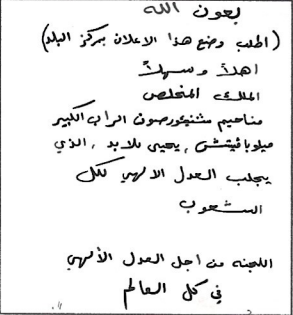 بعون الله
(اطلب وضع هذا الاعلان بمركز البلد)
اهلاً وسهلاً
الملك المخلص
مناحيم مشنيئورصون الراب الكبير
ميلوبافيتش, يحيى للابد, الذي
يجلب العدل الالهي لكل
الشعوب
اللجنه من اجل العدل الألهي
في كل العالم